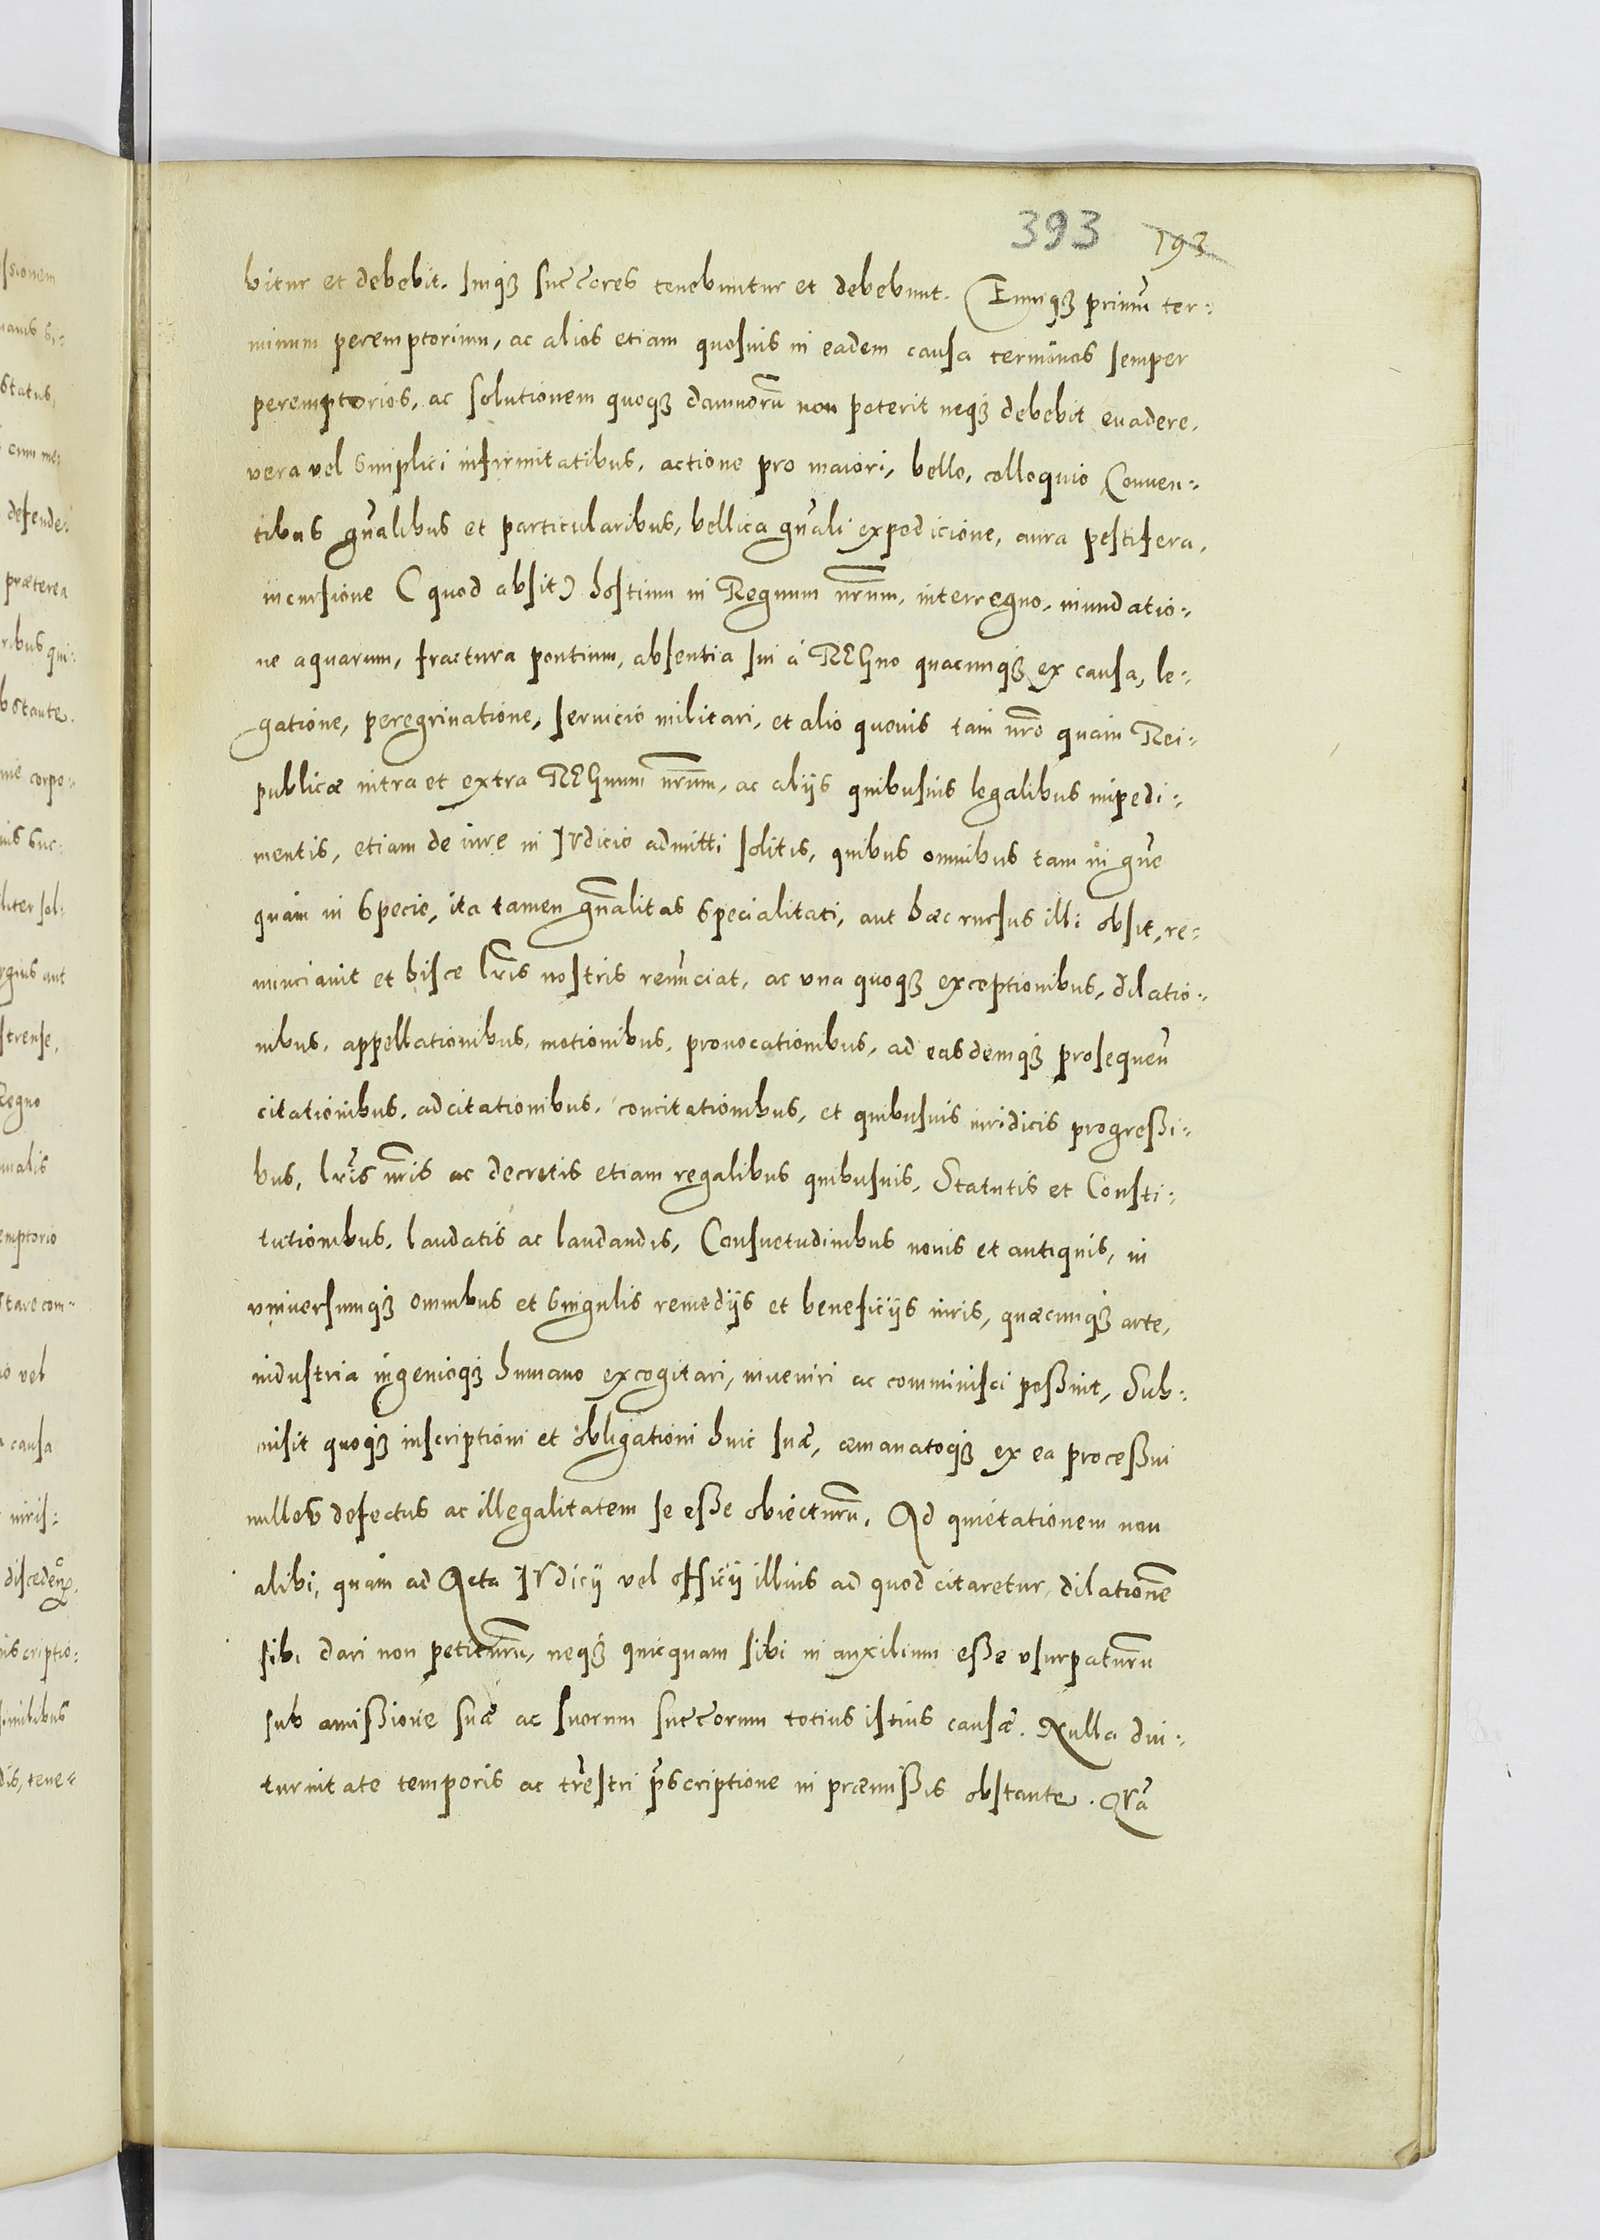 393 193
ssionem
status,
cum me⸗
defende⸗
præterea
ribus qui⸗
bstante.
me corpo⸗
uis suc⸗
liter sol⸗
rgius aut
strense,
Regno
malis
emptorio
stare com⸗
io vel
causa
iuris⸗
inscriptio⸗
similibus
dis, tene⸗
bitur et debebit. suiqȝ succores tenebuntur et debebunt. Eumqȝ primū ter⸗
minum peremptorium, ac alios etiam quosuis in eadem causa terminos semper
peremptorios, ac solutionem quoqȝ damnorū non poterit neqȝ debebit euadere.
vera vel simplici infirmitatibus, actione pro maiori, bello, colloquio Conuen⸗
tibus gñalibus et particularibus, bellica gñali expedicione, aura pestifera,
incursione (quod absit) hostium in Regnum nr̄um, interregno, inundatio⸗
ne aquarum, fractura pontium, absentia sui à REGno quacunqȝ ex causa, le⸗
gatione, peregrinatione, seruicio militari, et alio quouis tam nr̄o quam Rei⸗
publicæ intra et extra REGnum nr̄um, ac alijs quibusuis legalibus impedi⸗
mentis, etiam de iure in IVdicio admitti solitis, quibus omnibus tam in gñe
quàm in specie, ita tamen gñalitas specialitati, aut hæc rursus illi obsit, re⸗
nunciauit et hisce lr̄is nostris renūciat, ac vna quoqȝ exceptionibus, dilatio⸗
nibus, appellationibus, motionibus, prouocationibus, ad easdemqȝ prosequeñ
citationibus, adcitationibus, concitationibus, et quibusuis iuridicis progreßi⸗
bus, lr̄is nr̄is ac decretis etiam regalibus quibusuis, Statutis et Consti⸗
tutionibus, laudatis ac laudandis, Consuetudinibus nouis et antiquis, in
vniuersumqȝ omnibus et singulis remedijs et beneficijs iuris, quæcunqȝ arte,
industria ingenioqȝ humano excogitari, inueniri ac comminisci poßint, Sub⸗
misit quoqȝ inscriptioni et obligationi huic suæ, æmanatoqȝ ex ea proceßui
nullos defectus ac illegalitatem se eße obiecturū. Ad quietationem non
alibi, quàm ad Acta IVdicij vel officij illius ad quod citaretur, dilationē
sibi dari non petiturū, neqȝ quicquam sibi in auxilium eße vsurpaturū
sub amißione suæ ac suorum succorum totius istius causæ. Nulla diu⸗
turnitate temporis ac trēstri p̄scriptione in præmißis obstante. QVā